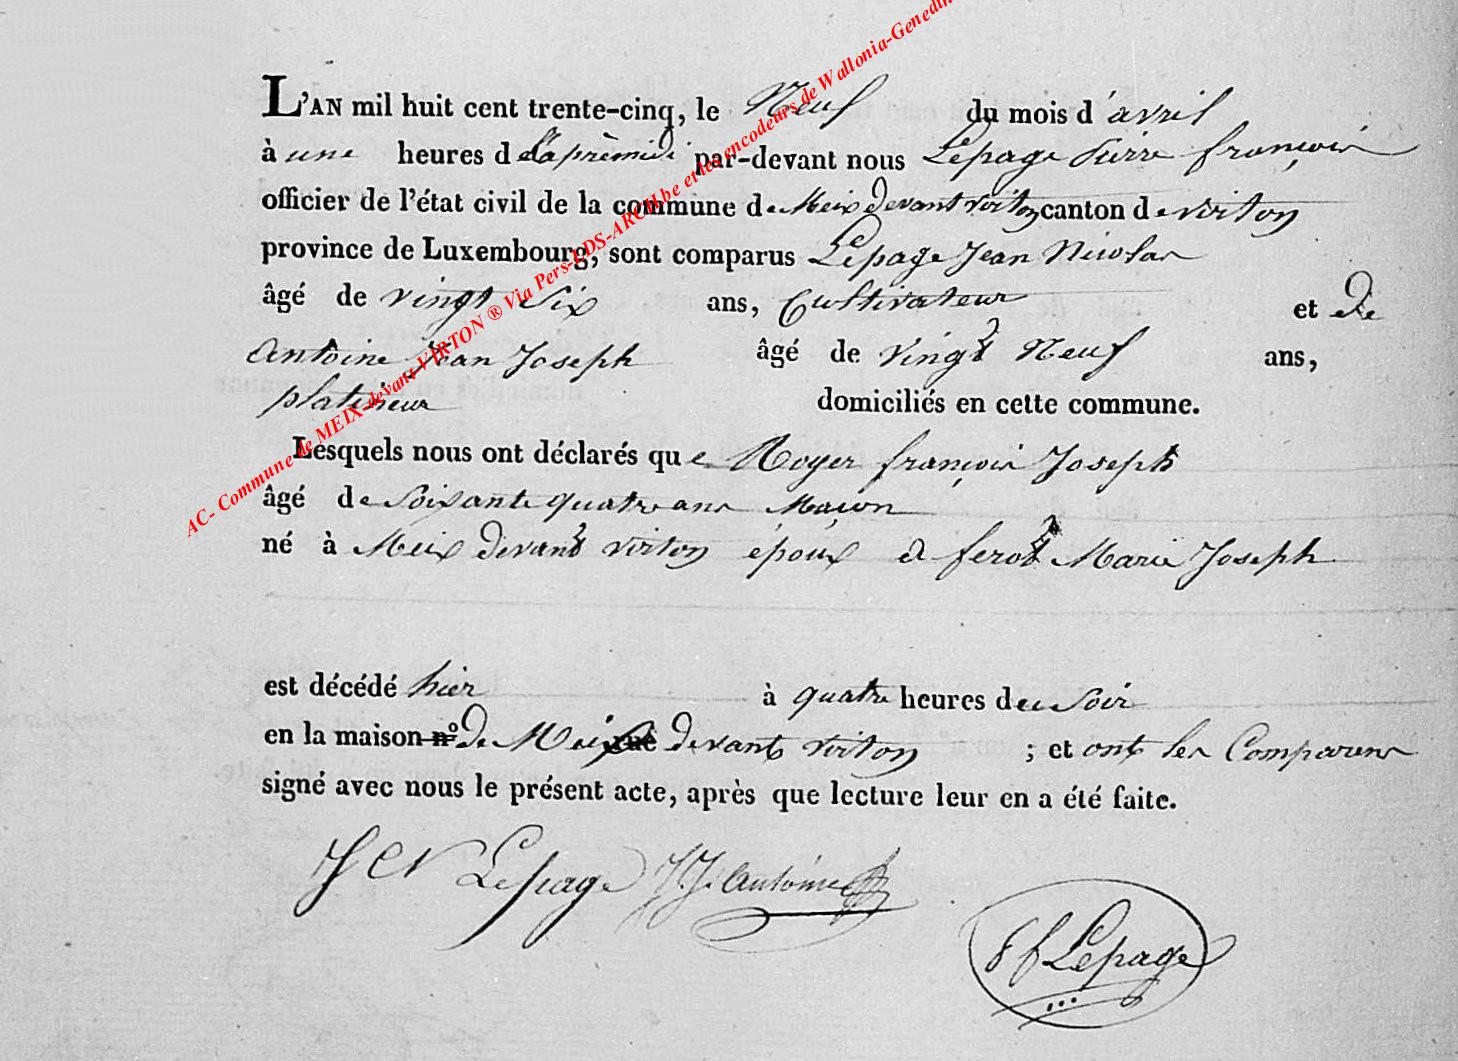 L'AN mil huit cent trente-cinq, le Neuf du mois d'avril
à une heures de l'aprèmidi par-devant nous Lepage Pierre françois
officier de l'état civil de la commune de Meix devant virton canton de virton
province de Luxembourg, sont comparus Lepage Jean Nicolas
âgé de vingt Six ans, Cultivateur et de
Antoine Jean Joseph âgé de vingt Neuf ans,
platineur domiciliés en cette commune.
Lesquels nous ont déclarés que Roger françois Joseph
âgé de Soixante quatre ans Maçon
né à Meix devant virton époux d ferot Marie Joseph
est décédé hier à quatre heures du Soir
en la maison n° de Meix rue devant virton ; et ont les Comparens
signé avec nous le présent acte, après que lecture leur en a été faite.
Lepage J. J. Antoine
Lepage
AC- Commune de MEIX-devant-VIRTON ® Via Pers-LDS-ARCH.be et les encodeurs de Wallonia-Genedin